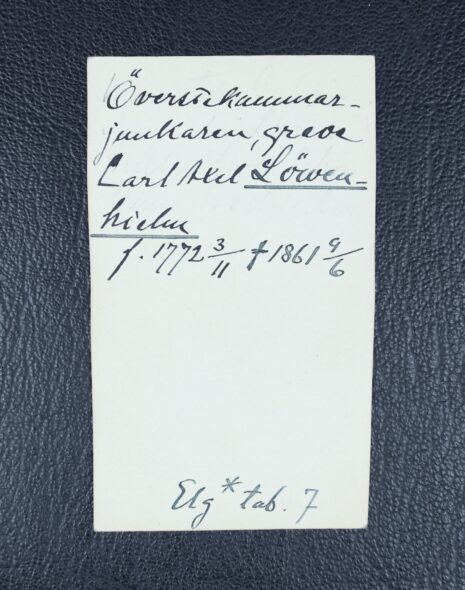 Överstekammar-
junkaren, greve
Carl Axel Löwen-
hielm
f. 1772 3/11 † 1861 9/6
Elg* tab. 7